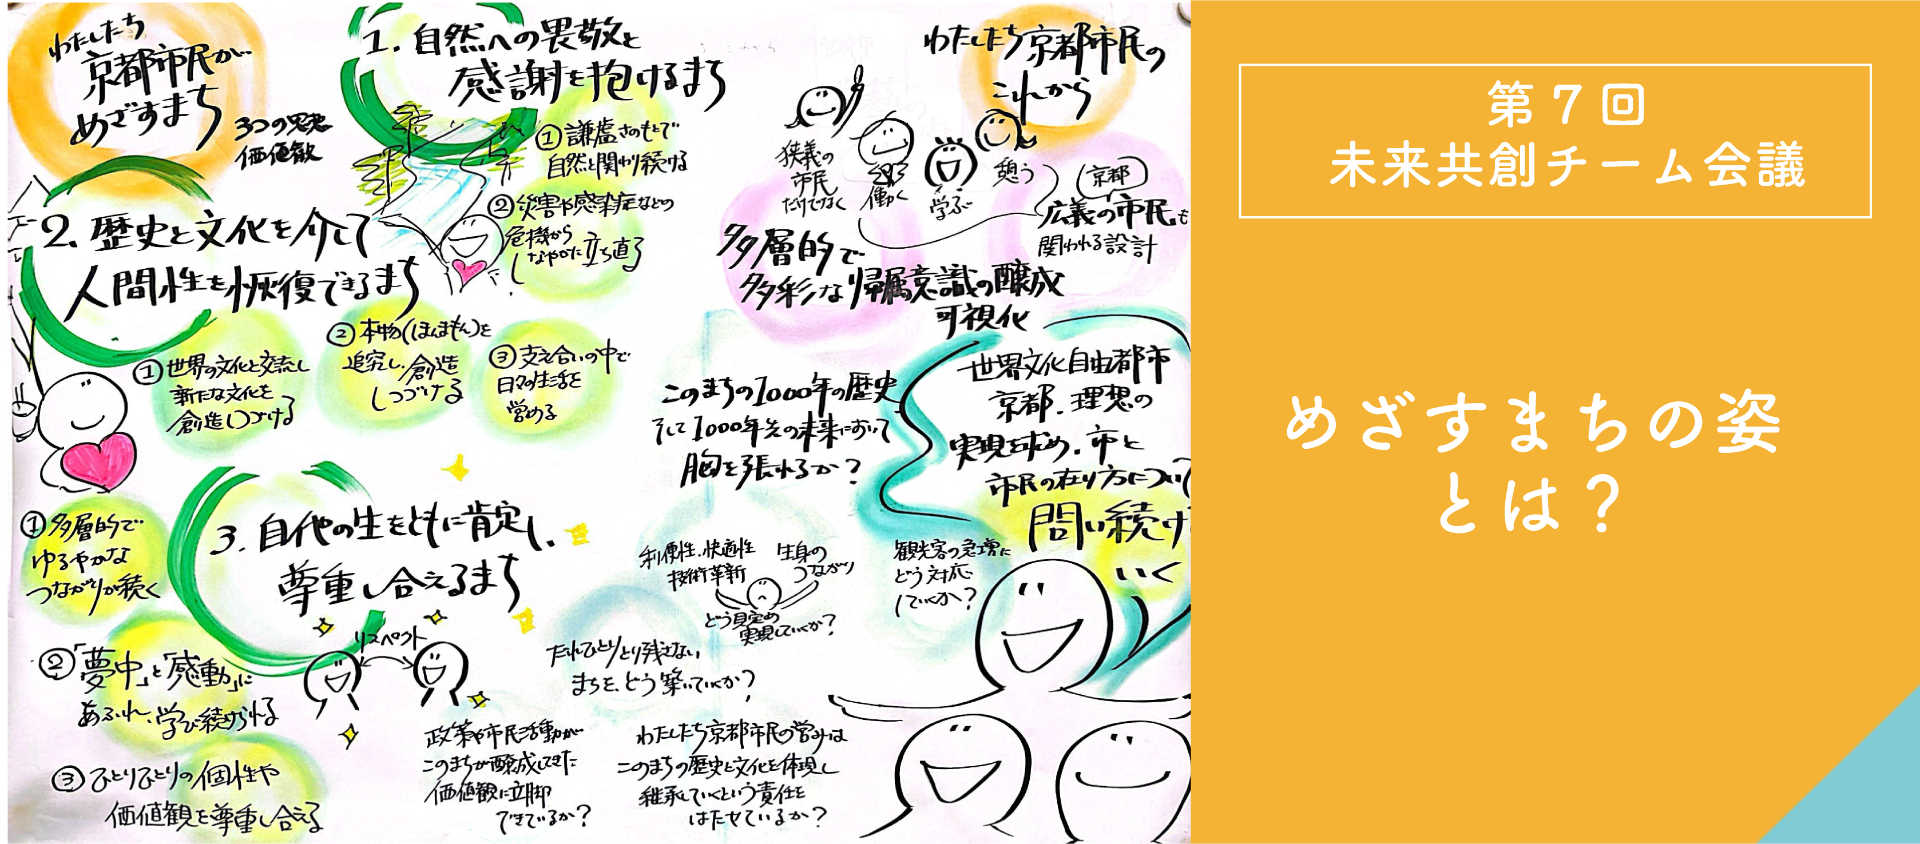 わたしたち
京都市民が
めざすまち
3つの思想
価値観
1. 自然への畏敬と
感謝を抱けるまち
①謙虚さのもとで
自然と関わり続ける
②災害や感染症などの
危機から
しなやかに立ち直る
2. 歴史と文化を介して
人間性を恢復できるまち
①世界の文化と交流し
新たな文化を
創造しつづける
②本物(ほんまもん)を
追究し、創造
しつづける
③支え合いの中で
日々の生活を
営める
3. 自他の生をともに肯定し、
尊重し合えるまち
リスペクト
①多層的で
ゆるやかな
つながりが続く
②「夢中」と「感動」に
あふれ、学び続けられる
③ひとりひとりの個性や
価値観を尊重し合える
わたしたち京都市民の
これから
狭義の
市民
だけでなく
働く
学ぶ
憩う
京都
広義の市民も
関われる設計
多層的で
多彩な帰属意識の醸成
可視化
このまちの1000年の歴史
そして1000年先の未来において
胸を張れるか?
世界文化自由都市
京都、理想の
実現を求め、市と
市民の在り方について
問い続け
いく
利便性、快適性
技術革新
生身の
つながり
どう見定め
実現していくか?
観光客の急増に
どう対応
していくか?
だれひとりとり残さない
まちを、どう築いていくか?
政策や市民活動が
このまちが醸成してきた
価値観に立脚
できているか?
わたしたち京都市民の営みは
このまちの歴史と文化を体現し
継承していくという責任を
はたせているか?
第7回
未来共創チーム会議
めざすまちの姿
とは?